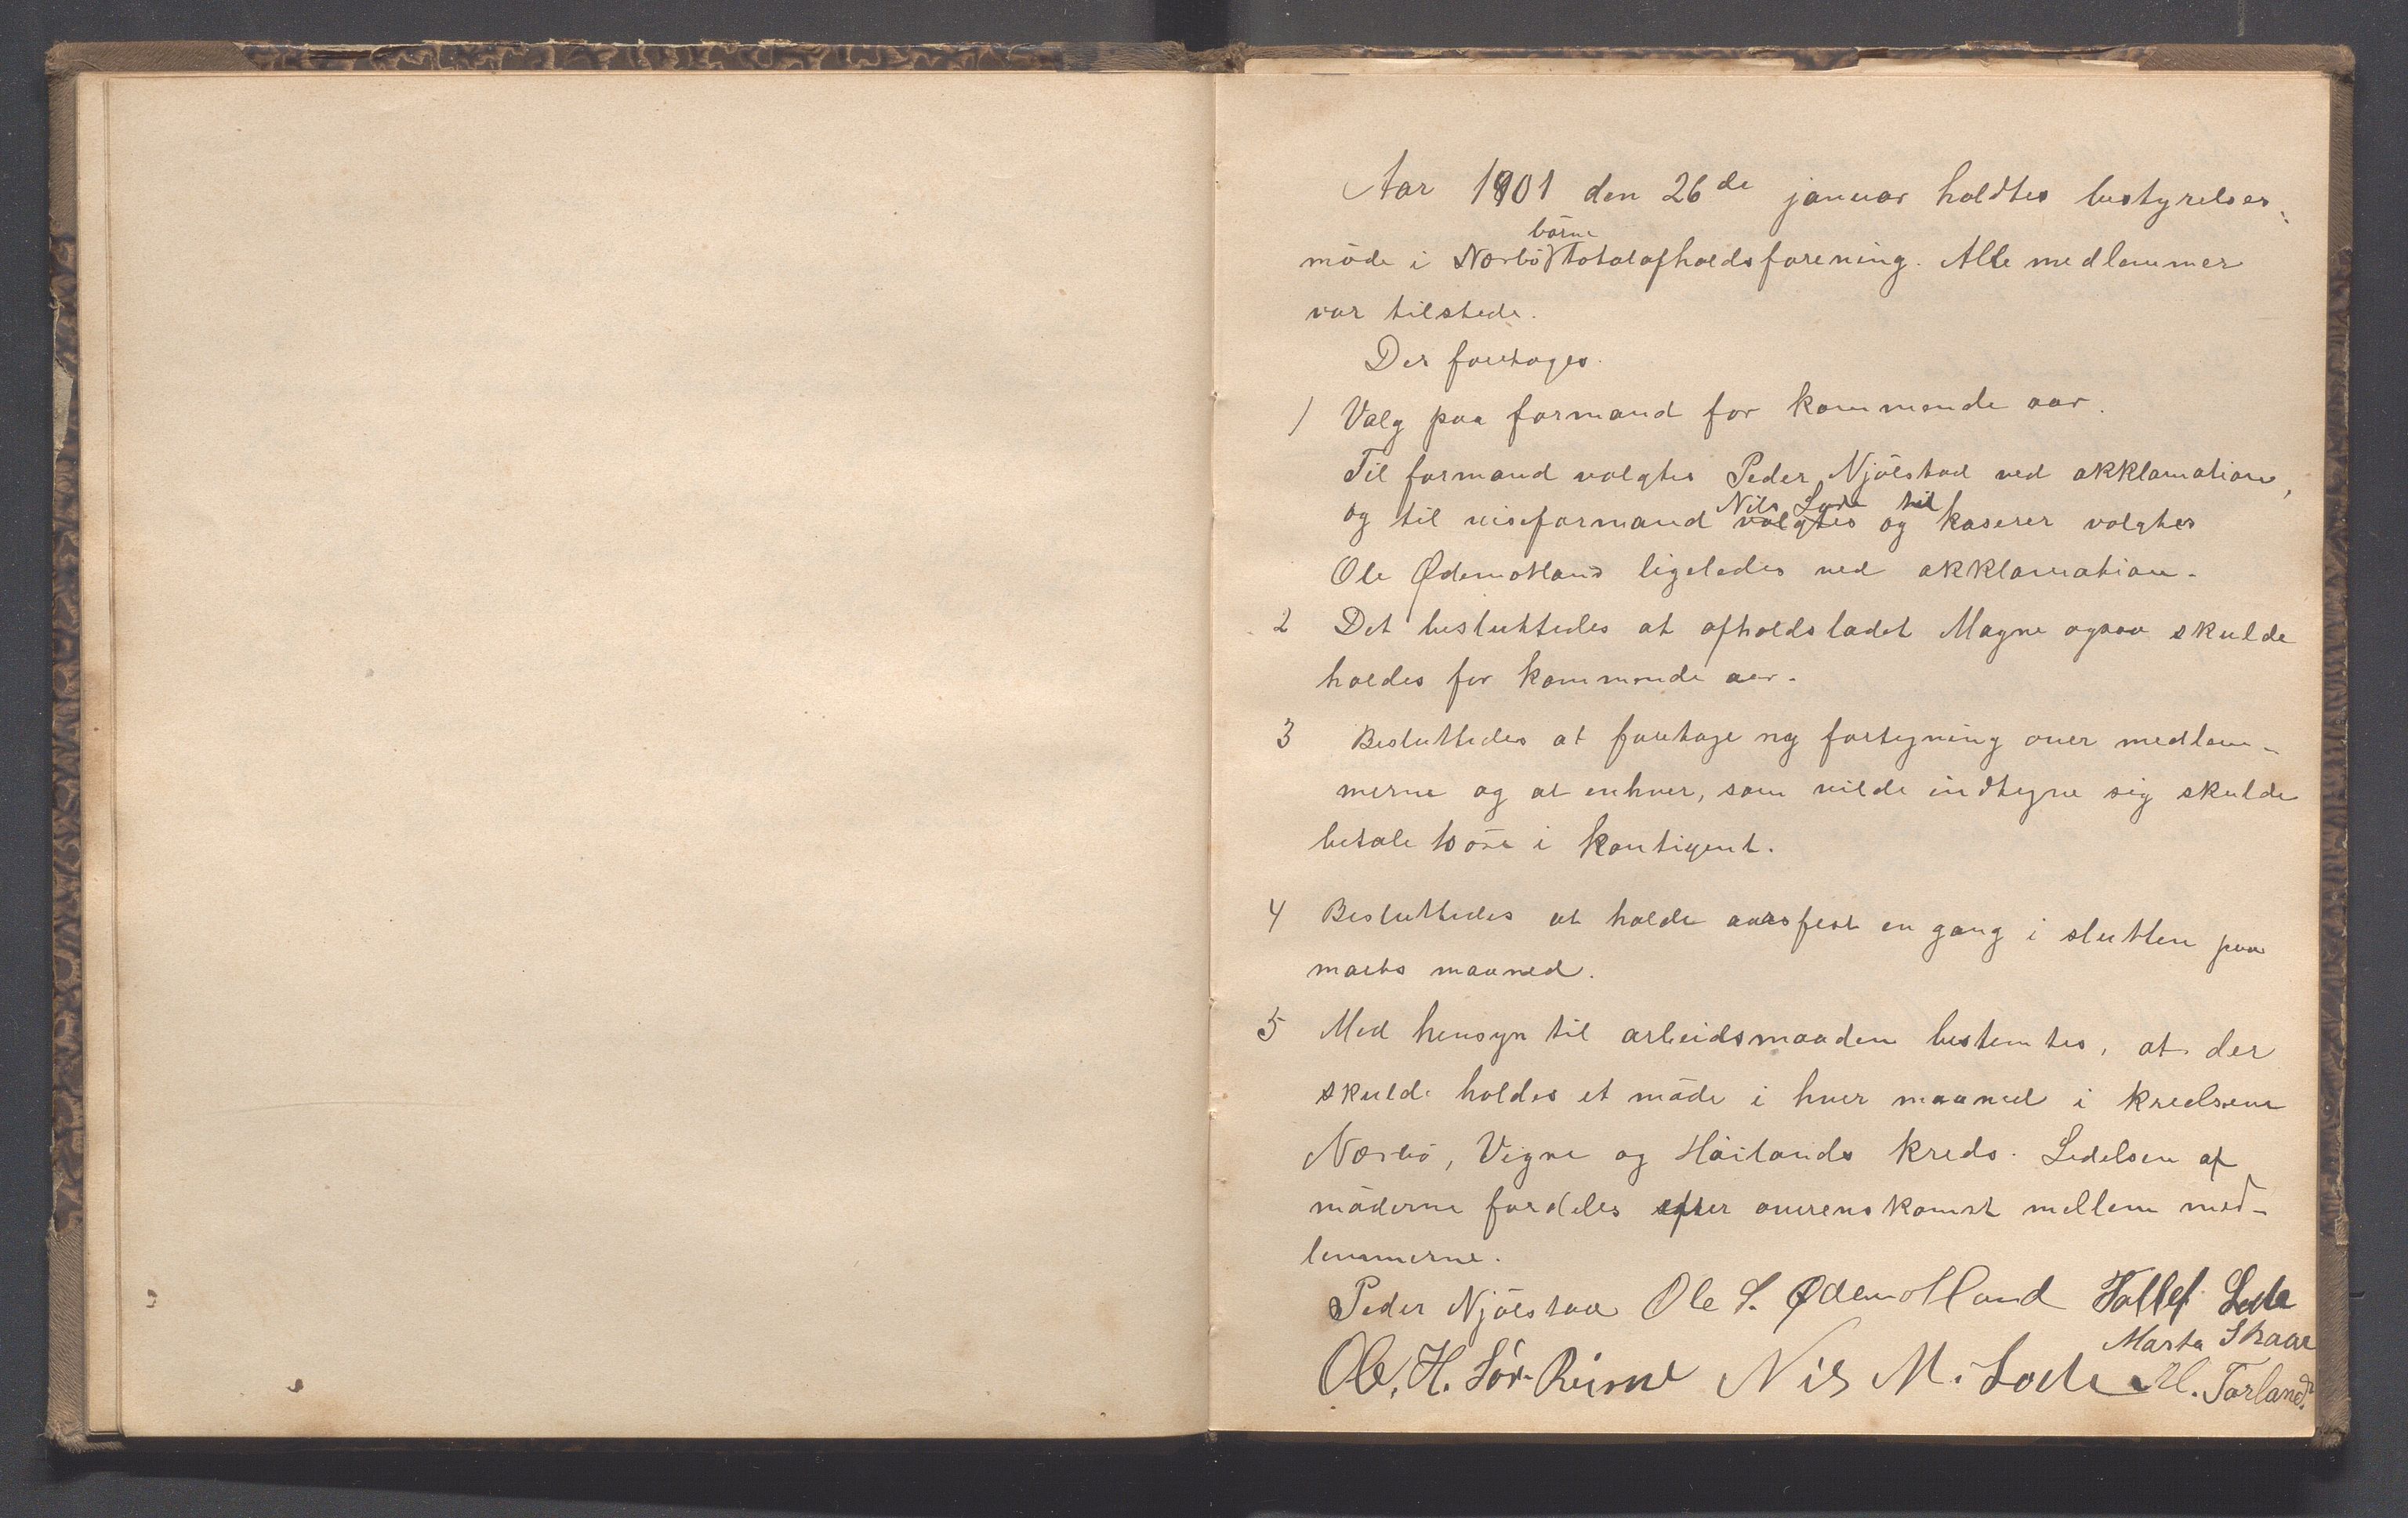 Aar 1901 den 26de januar holdtes bestyrelses-
börne
möde i Nærbö totalafholdsforening. Alle medlemmer
var tilstede.
Der foretoges.
1 Valg paa formand for kommende aar.
Til formand valgtes Peder Njölstad ved akklamation,
Nils Lode til
og til viseformand valgtes og kaserer valgtes
Ole Ødemotland ligeledes ved akklamation.
2 Det besluttedes at afholdsladet Magne ogsaa skulde
holdes for kommende aar.
3 Besluttedes at foretage ny fortegning over medlem-
merne og at enhver, som vilde indtegne sig skulde
betale 10 öre i kontigent.
4 Besluttedes at holde aarsfest en gang i slutten paa
marts maaned.
5 Med hensyn til arbeidsmaaden bestemtes, at der
skulde holdes et möde i hver maaned i kredsene
Nærbö, Vigre og Höilands kreds. Ledelsen af
möderne fordeles efter overenskomst mellem med-
lemmerne.
Peder Njölstad Ole S. Ødemotland Tollef Lode
Marta Skaar
Ole. H. Sör-Reime Nils M. Lode M. Torland.